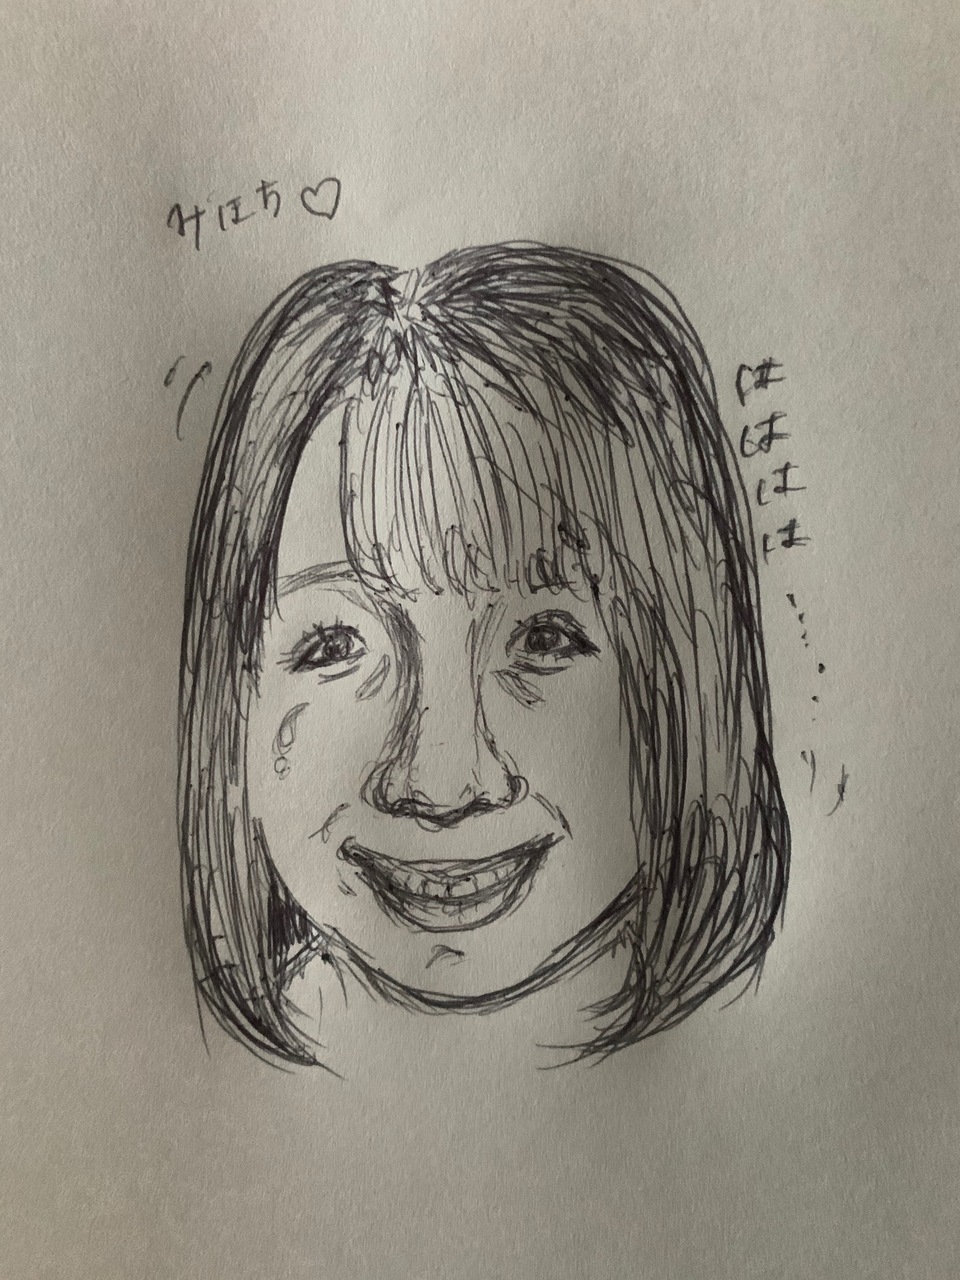 みほち♡
はははは……